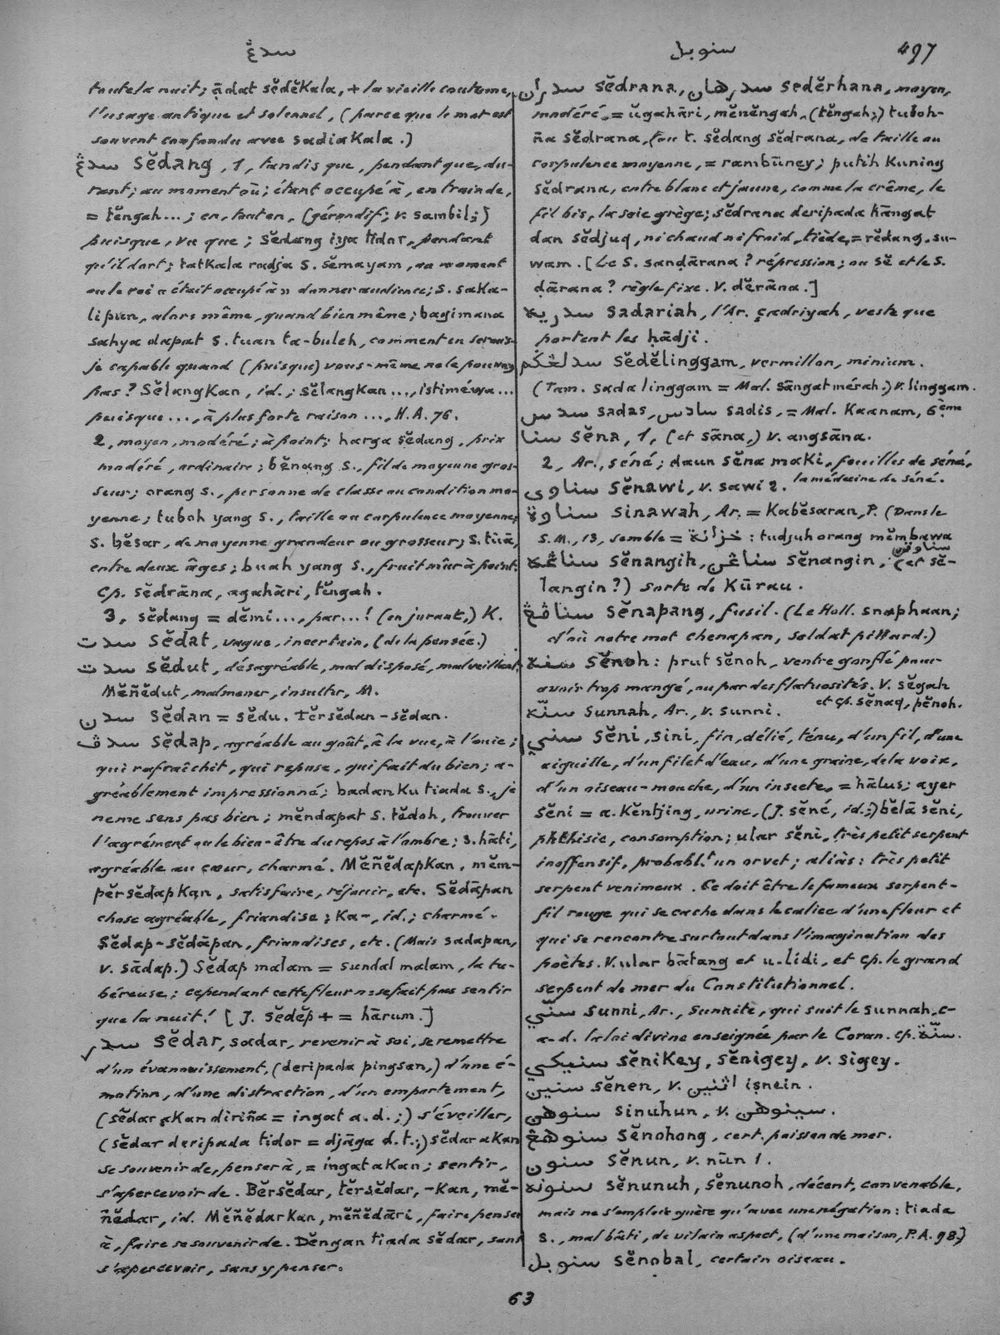 سدڠ
سنوبل 497
toute la nuit; ădat sĕdĕkala, + la vieille coutume,
l'usage antique et solennel, (parce que le mot est
souvent confondu avec sadiakala.)
سدڠ sĕdang, 1, tandis que, pendant que, du-
rant; au moment où; étant occupé à, en train de,
= tĕngah...; en, tout en, (gérondif; v. sambil;)
puisque, vu que; sĕdang iya tidor, pendant
qu'il dort; tatkala radja s. sĕmayam, au moment
où le roi "était occupé à" donner audience; s. saka-
lipun, alors même, quand bien même; bagimana
sahya dapat s. tuan ta-buleh, comment en serais-
je capable quand (puisque) vous-même ne le pouvez
pas? Sĕlangkan, id.; sĕlangkan..., istiméwa...
puisque..., à plus forte raison..., H.A. 76.
2, moyen, modéré; à point; harga sĕdang, prix
modéré, ordinaire; bĕnang s., fil de moyenne gros-
seur; orang s., personne de classe ou condition mo-
yenne; tuboh yang s., taille ou corpulence moyenne;
s. bĕsar, de moyenne grandeur ou grosseur; s. tūā,
entre deux âges; buah yang s., fruit mûr à point.
Cp. sĕdrāna, agahāri, tĕngah.
3, sĕdang = dĕmi..., par...! (en jurant,) K.
سدت sĕdat, vague, incertain, (de la pensée.)
سدت sĕdut, désagréable, mal disposé, malveillant,
Mĕñĕdut, malmener, insulter, M.
سدن sĕdan = sĕdu. tĕrsĕdan-sĕdan.
سدڤ sĕdap, agréable au goût, à la vue, à l'ouïe;
qui rafraîchit, qui repose, qui fait du bien; a-
gréablement impressionné; badanku tiada s., je
ne me sens pas bien; mĕndapat s. tĕdoh, trouver
l'agrément ou le bien-être du repos à l'ombre; s. hāti,
agréable au cœur, charmé. Mĕñĕdapkan, mĕm-
pĕrsĕdapkan, satisfaire, réjouir, etc. Sĕdāpan
chose agréable, friandise; Ka-, id.; charmé.
Sĕdap-sĕdāpan, friandises, etc. (Mais sadapan,
v. sādap.) Sĕdap malam = sundal malam, la tu-
béreuse; cependant cette fleur ne se fait pas sentir
que la nuit! [J. sĕdĕp + = hārum.]
سدر sĕdar, sadar, revenir à soi, se remettre
d'un évanouissement, (deripada pingsan,) d'une é-
motion, d'une distraction, d'un emportement,
(sĕdar akan diriña = ingat a.d.;) s'éveiller,
(sĕdar deripada tidor = djāga d.t.;) sĕdar akan
se souvenir de, penser à, = ingat akan; sentir,
s'apercevoir de. Bĕrsĕdar, tĕrsĕdar, -kan, mĕ-
ñĕdar, id. Mĕñĕdarkan, mĕñĕdāri, faire penser
à, faire se souvenir de. Dĕngan tiada sĕdar, sans
s'apercevoir, sans y penser.
سدران sĕdrana, سدرهان sedĕrhana, moyen,
modéré, = ūgahāri, mĕnĕngah, (tĕngah;) tuboh-
ña sĕdrana, (ou t. sĕdang sĕdrana, de taille ou
corpulence moyenne, = rambūney; putih kuning
sĕdrana, entre blanc et jaune, comme la crême, le
fil bis, la soie grège; sĕdrana deripada hāngat
dan sĕdjuq, ni chaud ni froid, tiède, = rĕdang. su-
wam. [Le S. sandārana? répression; ou sĕ et le S.
dārana? règle fixe. V. dĕrāna.]
سدريه sadariah, l'Ar. çadriyah, veste que
portent les hādji.
سدلڠݢم sĕdĕlinggam, vermillon, minium.
(Tam. sada linggam = Mal. sāngat mérah.) V. linggam.
سدس sadas, سادس sadis, = Mal. Kaanam, 6ème
سنا sĕna, 1, (et sāna,) v. angsāna.
2, Ar., séné; daun sĕna maki, feuilles de séné,
la médecine de séné.
سناوي sĕnawi, v. sawi 2.
سناوة sinawah, Ar. = Kabĕsaran, P. (Dans le
S.M., 13, semble = خزانة : tudjuh orang mĕmbawa
سناوتن
سناڠه sĕnangih, سناڠن sĕnangin, (et sĕ-
langin?) sorte de Kūrau.
سناڤڠ sĕnapang, fusil. (Le Holl. snaphaan;
d'où notre mot chenapan, soldat pillard.)
سنه sĕnoh: prut sĕnoh, ventre gonflé pour
avoir trop mangé, ou par des flatuosités. V. sĕgah
et cp. sĕnaq, pĕnoh.
سنّه sunnah, Ar., v. sunni.
سني sĕni, sini, fin, délié, ténu, d'un fil, d'une
aiguille, d'un filet d'eau, d'une graine, de la voix,
d'un oiseau-mouche, d'un insecte, = hālus; ayer
sĕni = a. Kĕntjing, urine, (J. sĕné, id.;) bĕlā sĕni,
phthisie, consomption; ular sĕni, très petit serpent
inoffensif, probablt un orvet; aliàs: très petit
serpent venimeux. Ce doit être le fameux serpent-
fil rouge qui se cache dans le calice d'une fleur et
qui se rencontre surtout dans l'imagination des
poètes. V. ular bātang et u. lidi, et cp. le grand
serpent de mer du Constitutionnel.
سنّي sunni, Ar., Sunnite, qui suit le sunnah, c-
à-d. la loi divine enseignée par le Coran. Cp. سنّة.
سنيكي sĕnikey, sĕnigey, v. sigey.
سنين sĕnen, v. اثنين iṣnein.
سنوهن sinuhun, v. سينوهن.
سنوهڠ sĕnohong, cert. poisson de mer.
سنون sĕnun, v. nūn 1.
سنونه sĕnunuh, sĕnunoh, décent, convenable,
mais ne s'emploie guère qu'avec une négation: tiada
s., mal bâti, de vilain aspect, (d'une maison, P.A. 98.)
سنوبل sĕnobal, certain oiseau.
63